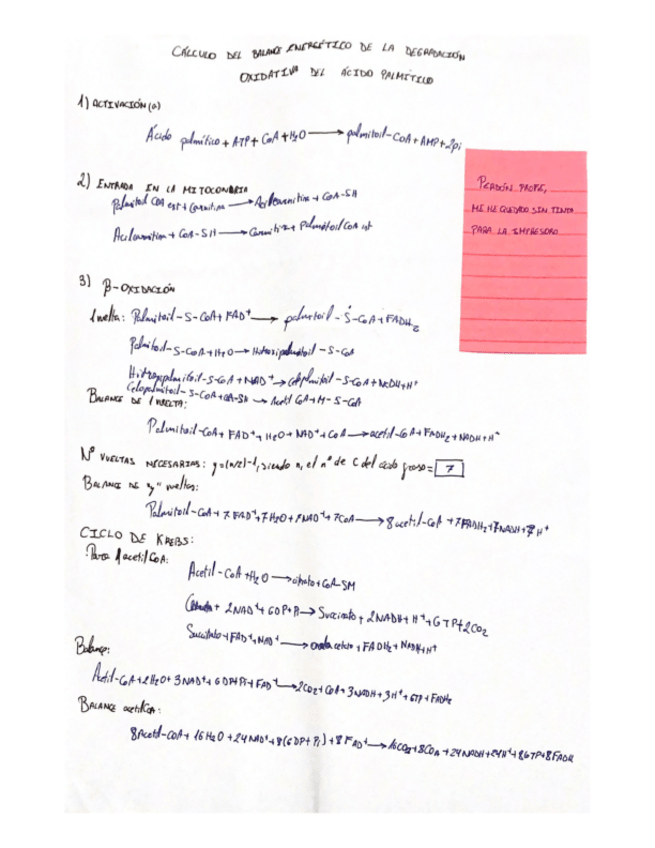 CÁLCULO DEL BALANCE ENERGÉTICO DE LA DEGRADACIÓN
OXIDATIVA DEL ÁCIDO PALMÍTICO
1) ACTIVACIÓN (a)
Ácido palmítico + ATP + CoA + H2O → palmitoil-CoA + AMP + 2pi
PERDÓN PROFE,
ME HE QUEDADO SIN TINTA
PARA LA IMPRESORA
2) ENTRADA EN LA MITOCONDRIA
Palmitoil CoA ext + Carnitina → Acilcarnitina + CoA-SH
Acilcarnitina + CoA-SH → Carnitina + Palmitoil CoA int
3) β-OXIDACIÓN
1 vuelta: Palmitoil-S-CoA + FAD+ → palmitoil-S-CoA + FADH2
Palmitoil-S-CoA + H2O → Hidroxipalmitoil-S-CoA
Hidroxipalmitoil-S-CoA + NAD+ → Cetopalmitoil-S-CoA + NADH + H+
Cetopalmitoil-S-CoA + CoA-SH → Acetil CoA + M-S-CoA
BALANCE DE 1 VUELTA:
Palmitoil-CoA + FAD+ + H2O + NAD+ + CoA → acetil-CoA + FADH2 + NADH + H+
Nº VUELTAS NECESARIAS: y=(n/2)-1, siendo n, el nº de C del ácido graso = 7
BALANCE DE "y" vueltas:
Palmitoil-CoA + 7FAD+ + 7H2O + 7NAD+ + 7CoA → 8acetil-CoA + 7FADH2 + 7NADH + 7H+
CICLO DE KREBS:
Para 1 acetil CoA:
Acetil-CoA + H2O → citrato + CoA-SH
Citrato + 2NAD+ + GDP + Pi → Succinato + 2NADH + H+ + GTP + 2CO2
Succinato + FAD+ + NAD+ → oxalacetato + FADH2 + NADH + H+
Balance:
Acetil-CoA + 2H2O + 3NAD+ + GDP + Pi + FAD+ → 2CO2 + CoA + 3NADH + 3H+ + GTP + FADH2
BALANCE acetil CoA:
8Acetil-COA + 16H2O + 24NAD+ + 8(GDP + Pi) + 8FAD+ → 16CO2 + 8COA + 24NADH + 24H+ + 8GTP + 8FADH